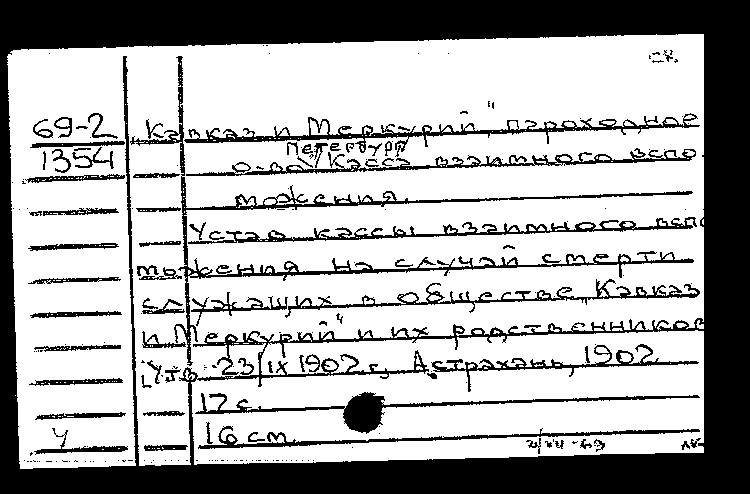 СК
69-2 „Кавказ и Меркурий", пароходное
1354 Петербург
о-во. Касса взаимного вспо-
можения.
Устав кассы взаимного вспо
можения на случай смерти
служащих в обществе „Кавказ
и Меркурий" и их родственников
Утв. 23/IX 1902 г. Астрахань, 1902.
17 с.
У 16 см.